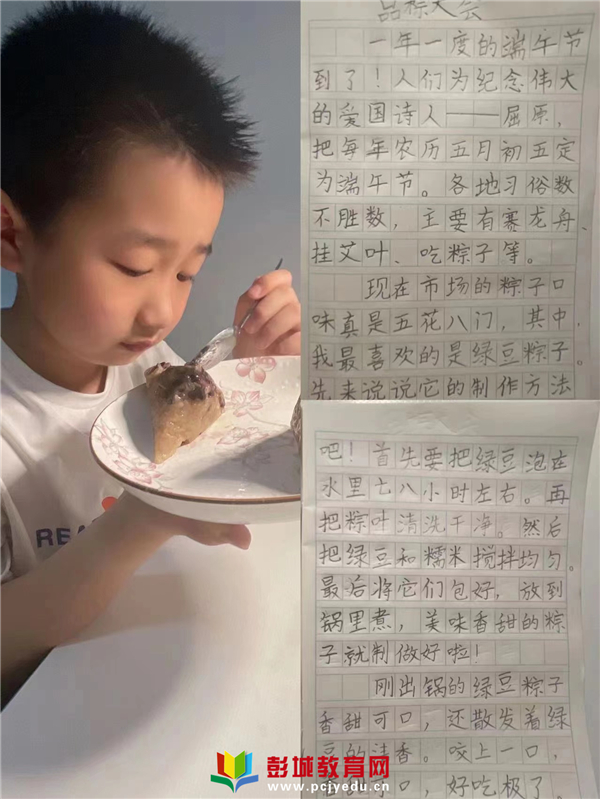 品粽大会
一年一度的端午节
到了！人们为纪念伟大
的爱国诗人——屈原，
把每年农历五月初五定
为端午节。各地习俗数
不胜数，主要有赛龙舟、
挂艾叶、吃粽子等。
现在市场的粽子口
味真是五花八门，其中，
我最喜欢的是绿豆粽子。
先来说说它的制作方法
吧！首先要把绿豆泡在
水里七八小时左右。再
把粽叶清洗干净。然后
把绿豆和糯米搅拌均匀。
最后将它们包好，放到
锅里煮，美味香甜的粽
子就制做好啦！
刚出锅的绿豆粽子
香甜可口，还散发着绿
豆的清香。咬上一口，
可口，好吃极了。
REA
彭城教育网
www.pcjyedu.cn